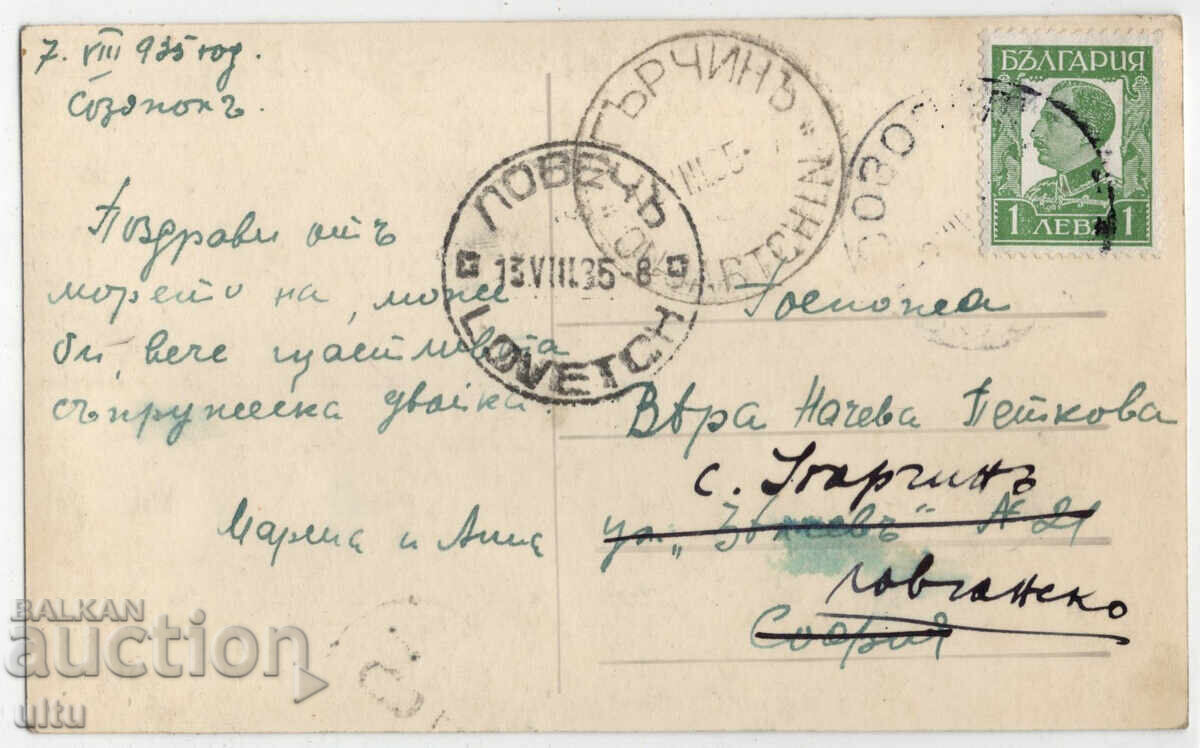 7. VIII 935 год.
Созопокъ.
Поздрави отъ
морето на, може
би, вече щастливата
съпружеска двойка
Мария и Анна
ГЪРЧИНЪ
ЛОВЕЧЪ
13.VIII.35-8
LOVETCH
СОЗО
БЪЛГАРИЯ
1 ЛЕВЪ 1
Госпожа
Вѣра Начева Петкова
с. Гърчинъ
ул. № 21
Ловчанско
София
BALKAN
auction
ultu